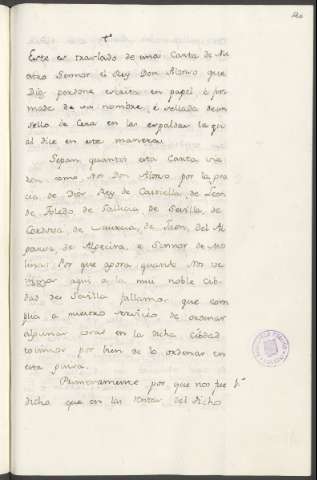 Este es traslado de una Carta de Nu
estro Sennor el Rey Don Alonso que
Dios perdone escrita en papel, è fir
mada de su nombre, è sellada de un
sello de Cera en las espaldas la qu
al dice en esta manera:
Sepan quantos esta Carta vie
ren como Nos Don Alonso por la gra
cia de Dios Rey de Castiella de Leon
de Toledo de Gallicia de Sevilla, de
Cordova, de Murcia, de Jaen, del Al
garve de Algecira, è Sennor de Mo
lina: Por que agora quando Nos ve
niemos aqui à la mui noble cib
dad de Sevilla fallamos que com
plia a nuestro servicio de ordenar
algunas cosas en la dicha cibdad
tovimos por bien de lo ordenar en
esta guisa.
Primeramente por que nos fue
dicho que en las rentas del dicho